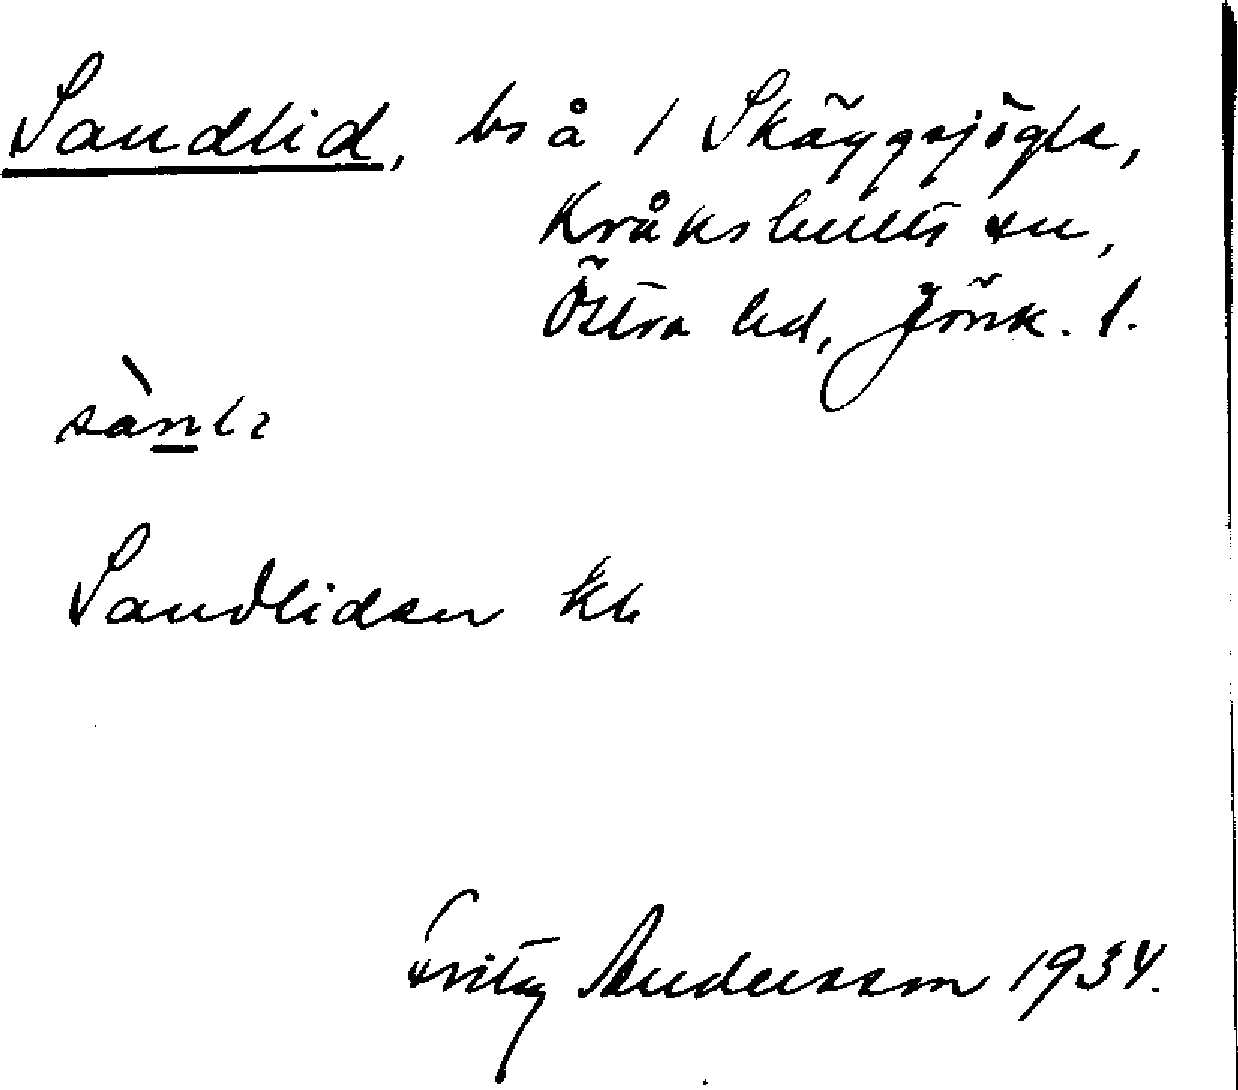 Sandlid, bs å 1 Skäggsjögle,
Kråkshults sn,
Östra hd, Jönk. l.
Sandliden kb
Fritz Andersson 1934.